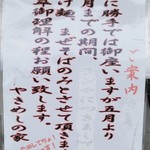 ご案内
に勝手では御座いますが五月より
月までの期間
け麺、まぜそばのみとさせて頂きま
卒御理解の程お願い致します。
やきめしの家